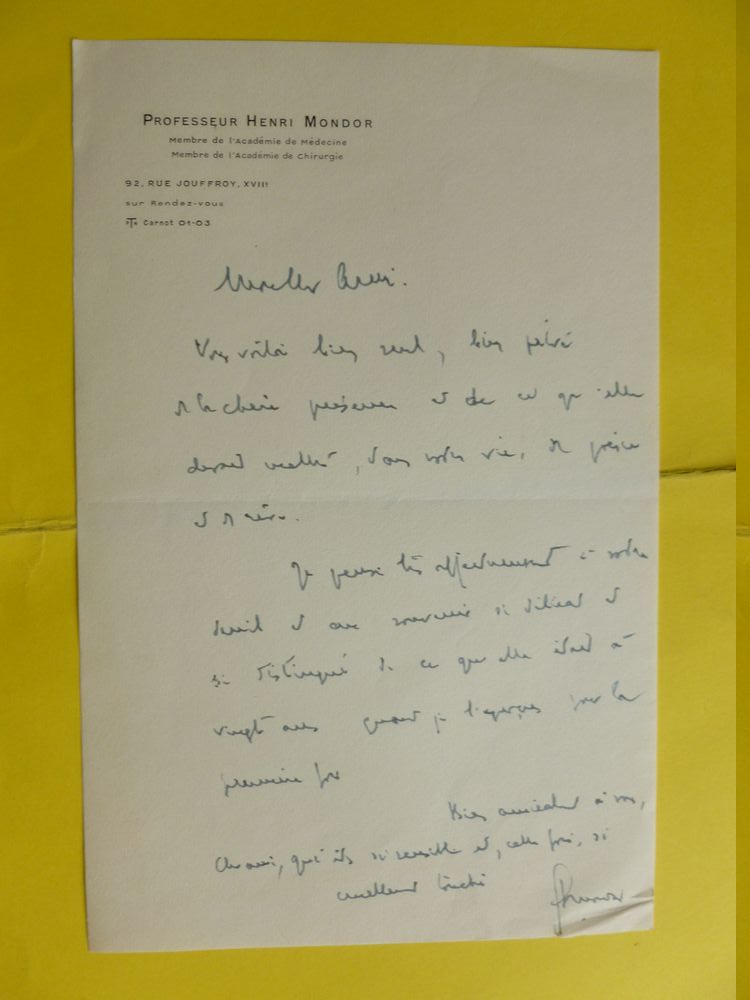 PROFESSEUR HENRI MONDOR
Membre de l'Académie de Médecine
Membre de l'Académie de Chirurgie
92, RUE JOUFFROY, XVIIe
sur Rendez-vous
Carnot 01-03
Mon cher ami.
Vous voilà bien seul, bien privé
de la chère présence et de ce qu'elle
devait mettre, dans votre vie, de
et de
Je pense très affectueusement à votre
deuil et au souvenir si délicat et
si distingué de ce que elle était à
vingt ans quand je l'aperçus pour la
première fois
Bien amicalement à vous,
Cher ami, qui êtes si sensible et, cette fois, si
cruellement touché
HMondor